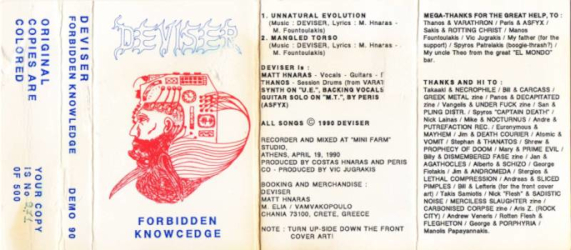 DEVISER
FORBIDDEN KNOWLEDGE DEMO 90
ORIGINAL
COPIES ARE
COLORED
YOUR COPY
IS No
OF 500
DEVISER
FORBIDDEN
KNOWCEDGE
1. UNNATURAL EVOLUTION
(Music : DEVISER, Lyrics : M. Hnaras -
M. Fountoulakis)
2. MANGLED TORSO
(Music : DEVISER, Lyrics : M. Hnaras -
M. Fountoulakis)
DEVISER Is :
MATT HNARAS - Vocals - Guitars - f
THANOS - Session Drums (from VARAT
SYNTH ON "U.E.", BACKING VOCALS
GUITAR SOLO ON "M.T.", BY PERIS
(ASFYX)
ALL SONGS © 1990 DEVISER
RECORDER AND MIXED AT "MINI FARM"
STUDIO,
ATHENS, APRIL 19, 1990
PRODUCED BY COSTAS HNARAS AND PERIS
CO - PRODUCED BY VIC JUGRAKIS
BOOKING AND MERCHANDISE :
DEVISER
MATT HNARAS
M. ELIA / VAMVAKOPOULO
CHANIA 73100, CRETE, GREECE
NOTE : TURN UP-SIDE DOWN THE FRONT
COVER ART!
MEGA-THANKS FOR THE GREAT HELP, TO :
Thanos & VARATHRON / Peris & ASFYX /
Sakis & ROTTING CHRIST / Manos
Fountoulakis / Vic Jugrakis / My father (for the
support) / Spyros Patrelakis (boogie-thrash?) /
My uncle Theo from the great "EL MONDO"
bar.
THANKS AND HI TO :
Takaaki & NECROPHILE / Bill & CARCASS /
GREEK METAL zine / Panos & DECAPITATED
zine / Vangelis & UNDER FUCK zine / San &
PLING DISTR. / Spyros "CAPTAIN DEATH" /
Nick Lainas / Mike & NOCTURNUS / Andre &
PUTREFACTION REC. / Euronymous &
MAYHEM / Jim & DEATH COURIER / Atomic &
VOMIT / Stephan & THANATOS / Shrew &
PROPHECY OF DOOM / Mary & PRIME EVIL /
Billy & DISMEMBERED FASE zine / Jan &
AGATHOCLES / Alberto & SCHIZO / George
Flotakis / Jim & ANDROMEDA / Stergios &
LETHAL COMPRESSION / Andreas & SLICED
PIMPLES / Bill & Lefteris (for the front cover
art) / Takis Samiotis / Nick "Flesh" & SADISTIC
NOISE / MERCILESS SLAUGHTER zine /
CARBONISED CORPSE zine / Aris Z. (ROCK
CITY) / Andrew Veneris / Rotten Flesh &
FLEGHETON / George & PORPHYRIA /
Manolis Papayannakis.